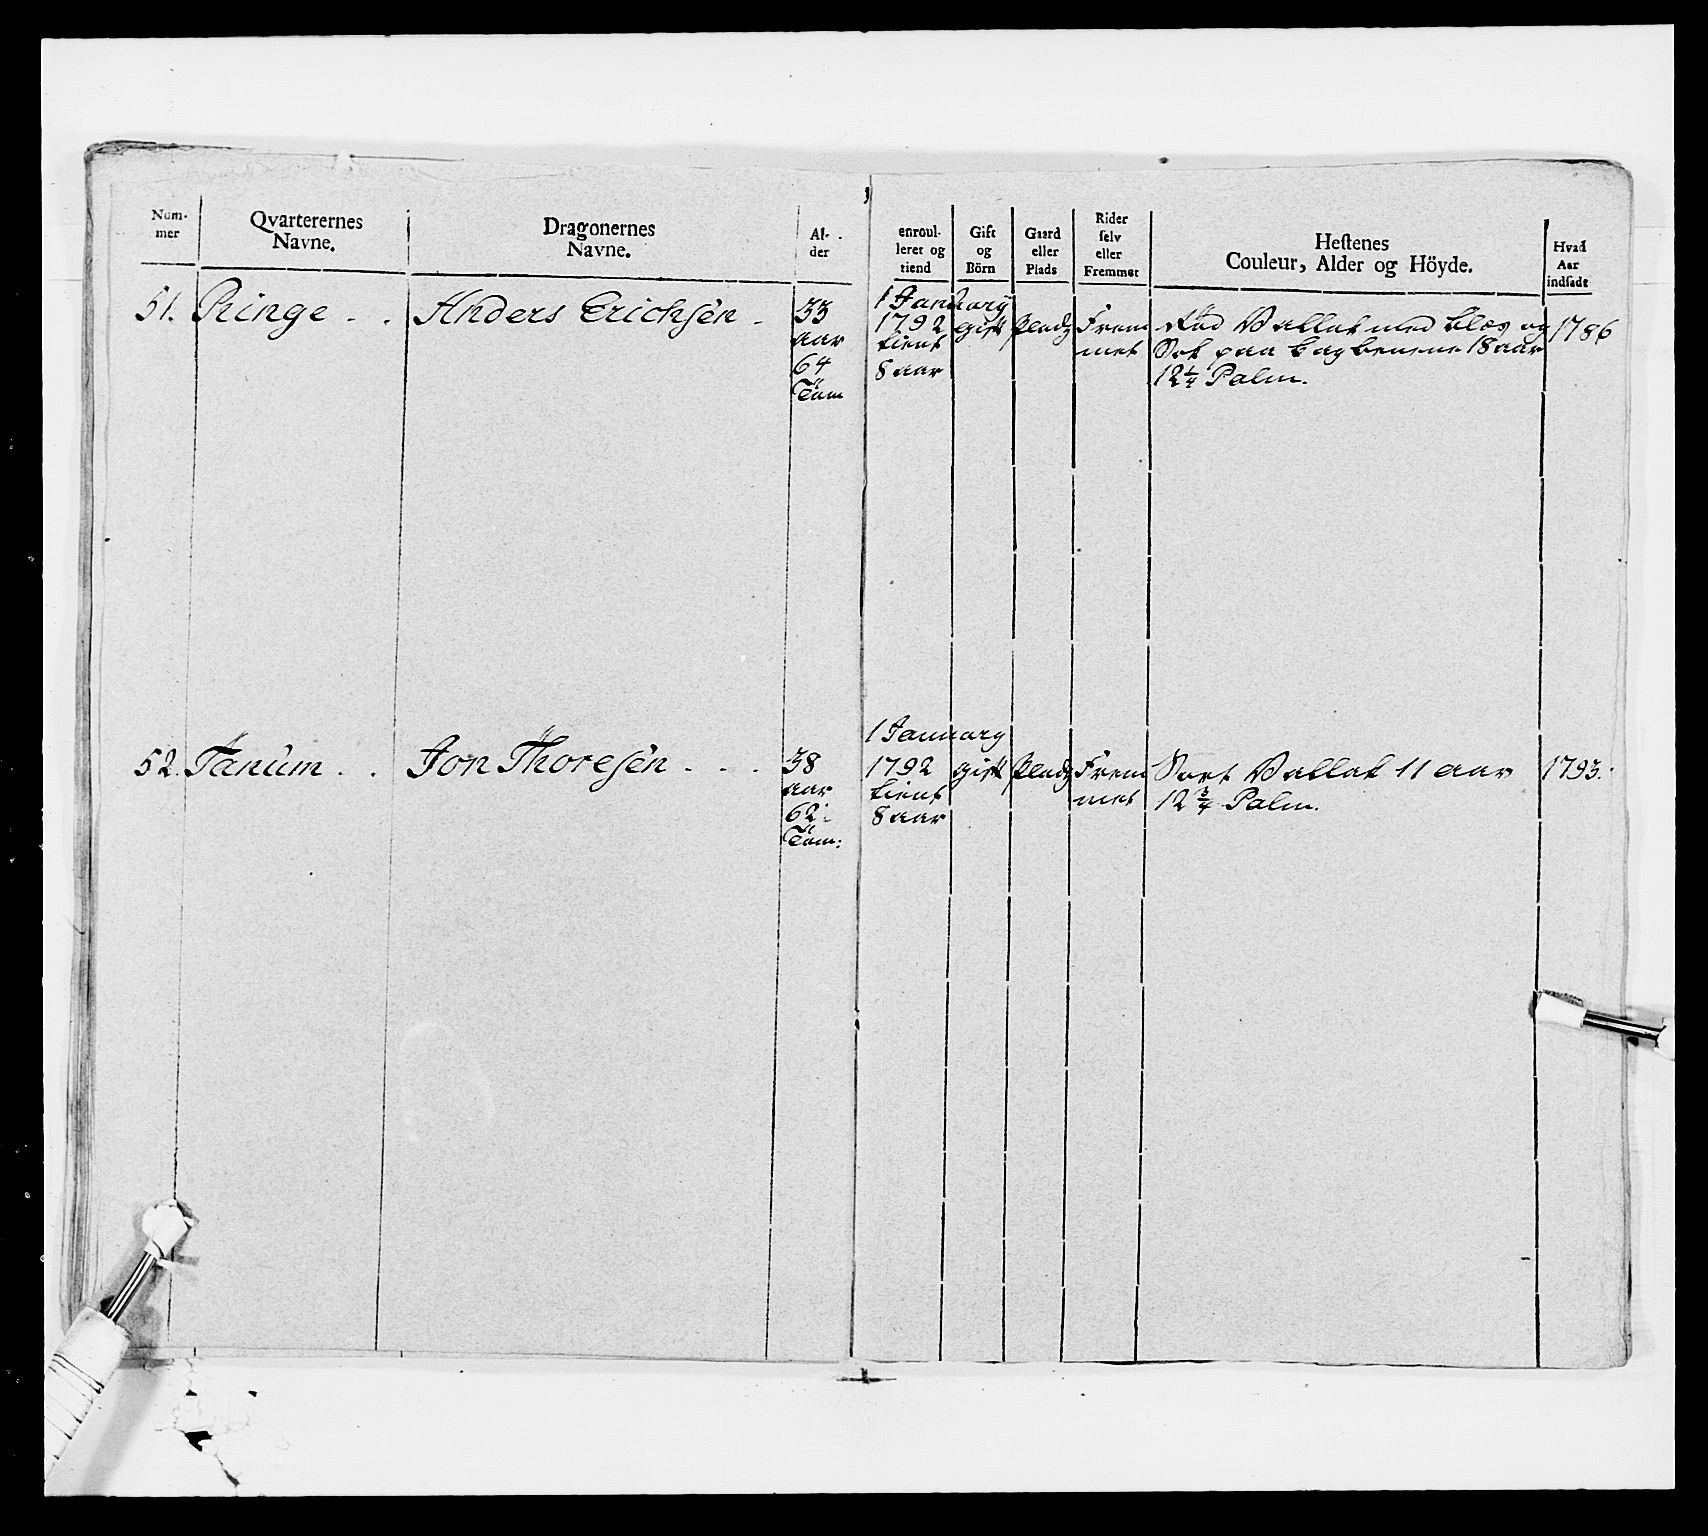 Num-
mer
Qvarterernes
Navne.
Dragonernes
Navne.
Al-
der
enroul-
leret og
tiend
Gift
og
Börn
Gaard
eller
Plads
Rider
selv
eller
Fremmet
Hestenes
Couleur, Alder og Höyde.
Hvad
Aar
indsade
51. Ringe - .
Anders Erichsen -
33
aar
64
Tüm
1 January
1792
tient
8 aar
gift
Plads
Frem
met
Rød Vallak med blæs og
Sok paa bagbenene 18 aar
12 1/4 Palm.
1786
52. Tanüm . .
Jon Thoresen - - -
38
aar
62:
Tüm:
1 January
1792
tient
8 aar
gift
Plads
Frem
met
Sort Vallak 11 aar
12 3/4 Palm.
1793.